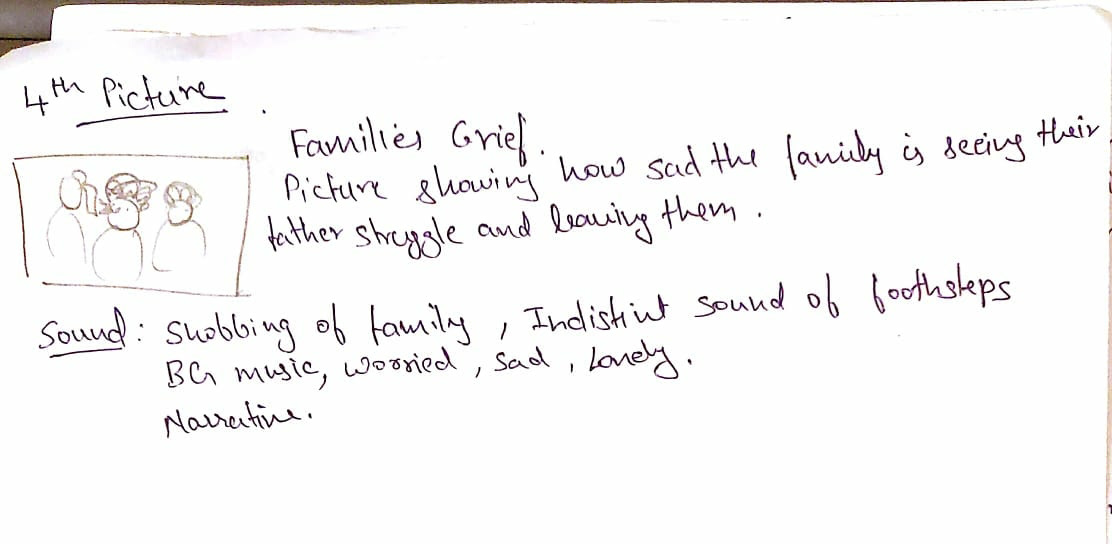 4th Picture
Families Grief.
Picture showing how sad the family is seeing their
father struggle and leaving them.
Sound: Shobbing of family, Indistint sound of foothsteps
BG music, worried, sad, Lonely.
Narrative.